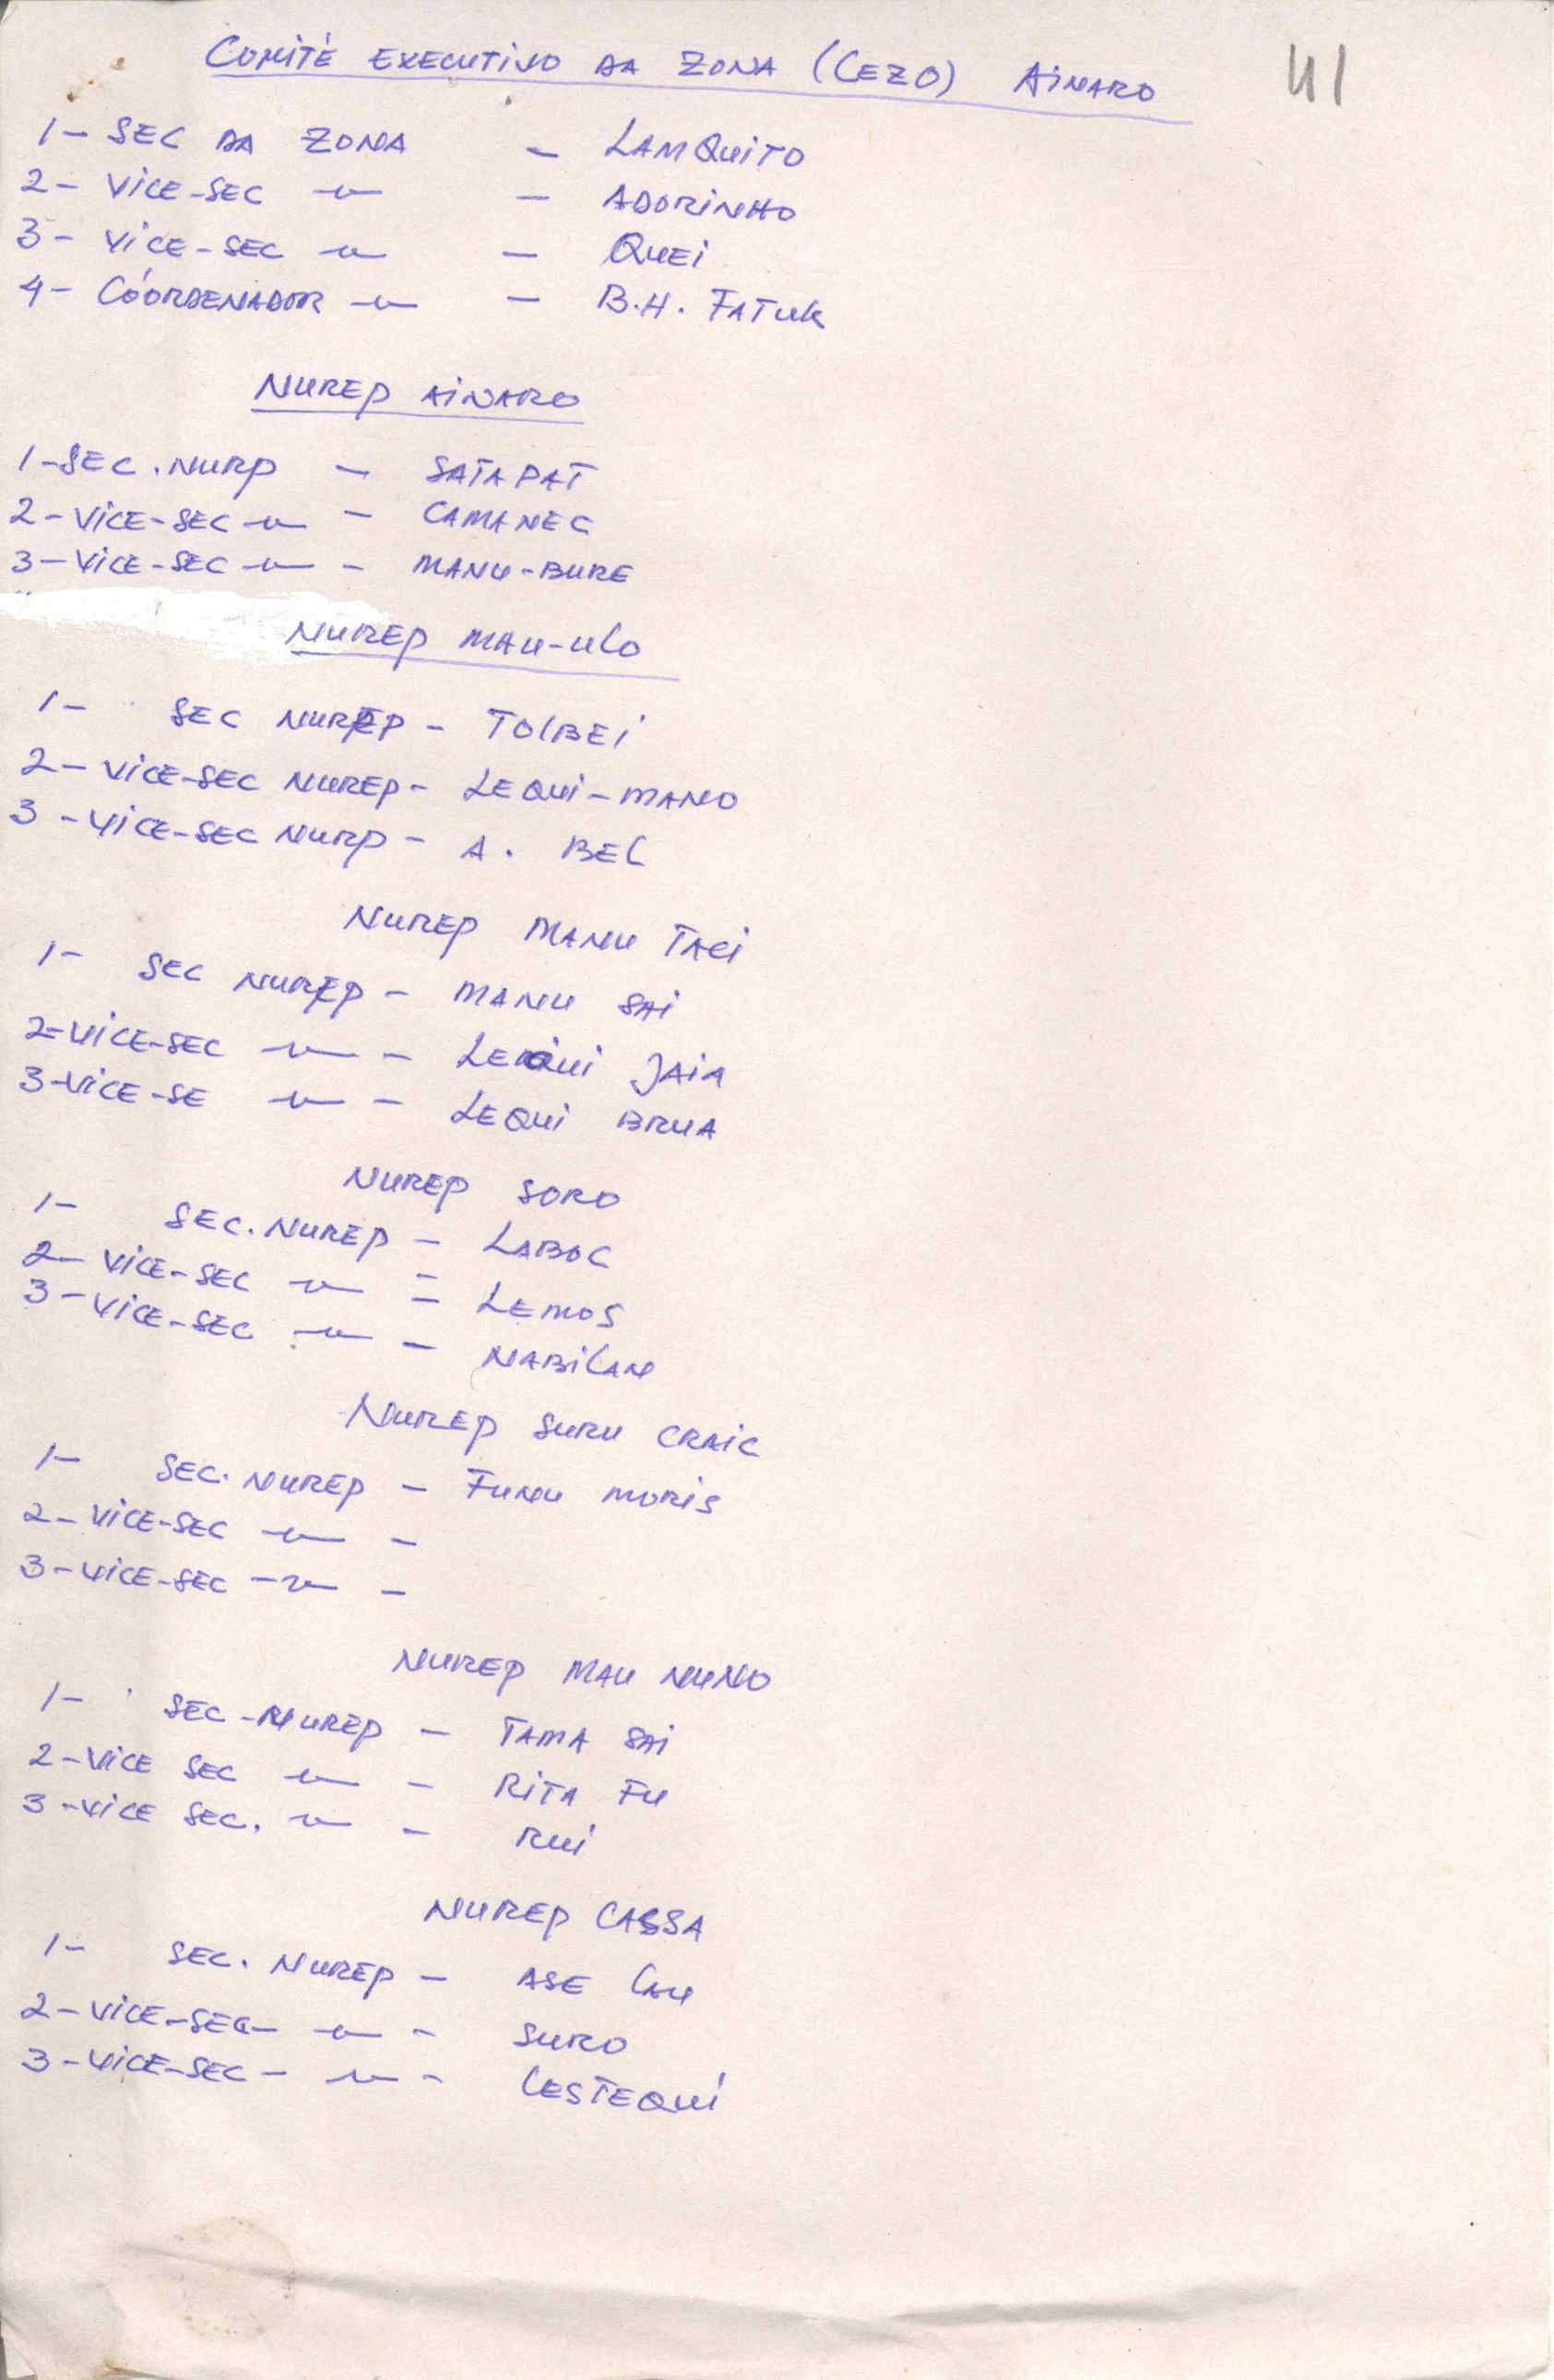 COMITÈ EXECUTIVO DA ZONA (CEZO) AiNARO 41
1- SEC DA ZONA - LAMQUiTO
2- ViCE-SEC -u- - ADORiNHO
3- ViCE-SEC -u- - QUEi
4- CÓORDENADOR -u- - B.H. FATUK
NUREP AiNARO
1-SEC.NURP - SATAPAT
2-ViCE-SEC -u- - CAMANEC
3-ViCE-SEC -u- - MANU-BURE
NUREP MAU-ULO
1- SEC NUREP - TOLBEi
2- ViCE-SEC NUREP- LEQUi-MANO
3-ViCE-SEC NURP- A. BEL
NUREP MANU TACi
1- SEC NUREP - MANU SAi
2-ViCE-SEC -u- - LEQUi JAiA
3-ViCE-SE -u- - LEQUi BRUA
NUREP SORO
1- SEC.NUREP - LABOC
2- ViCE-SEC -u- = LEMOS
3-ViCE-SEC -u- - NABiLAN
NUREP SURU CRAiC
1- SEC. NUREP - FUNU MORiS
2- ViCE-SEC -u- -
3-ViCE-SEC -u- -
NUREP MAU NUNO
1- SEC-NUREP - TAMA SAi
2-ViCE SEC -u- - RiTA FU
3-ViCE SEC. -u- - RUi
NUREP CASSA
1- SEC. NUREP - ASE LAU
2-ViCE-SEC- -u- - SURO
3-ViCE-SEC- -u- - LESTEQUi